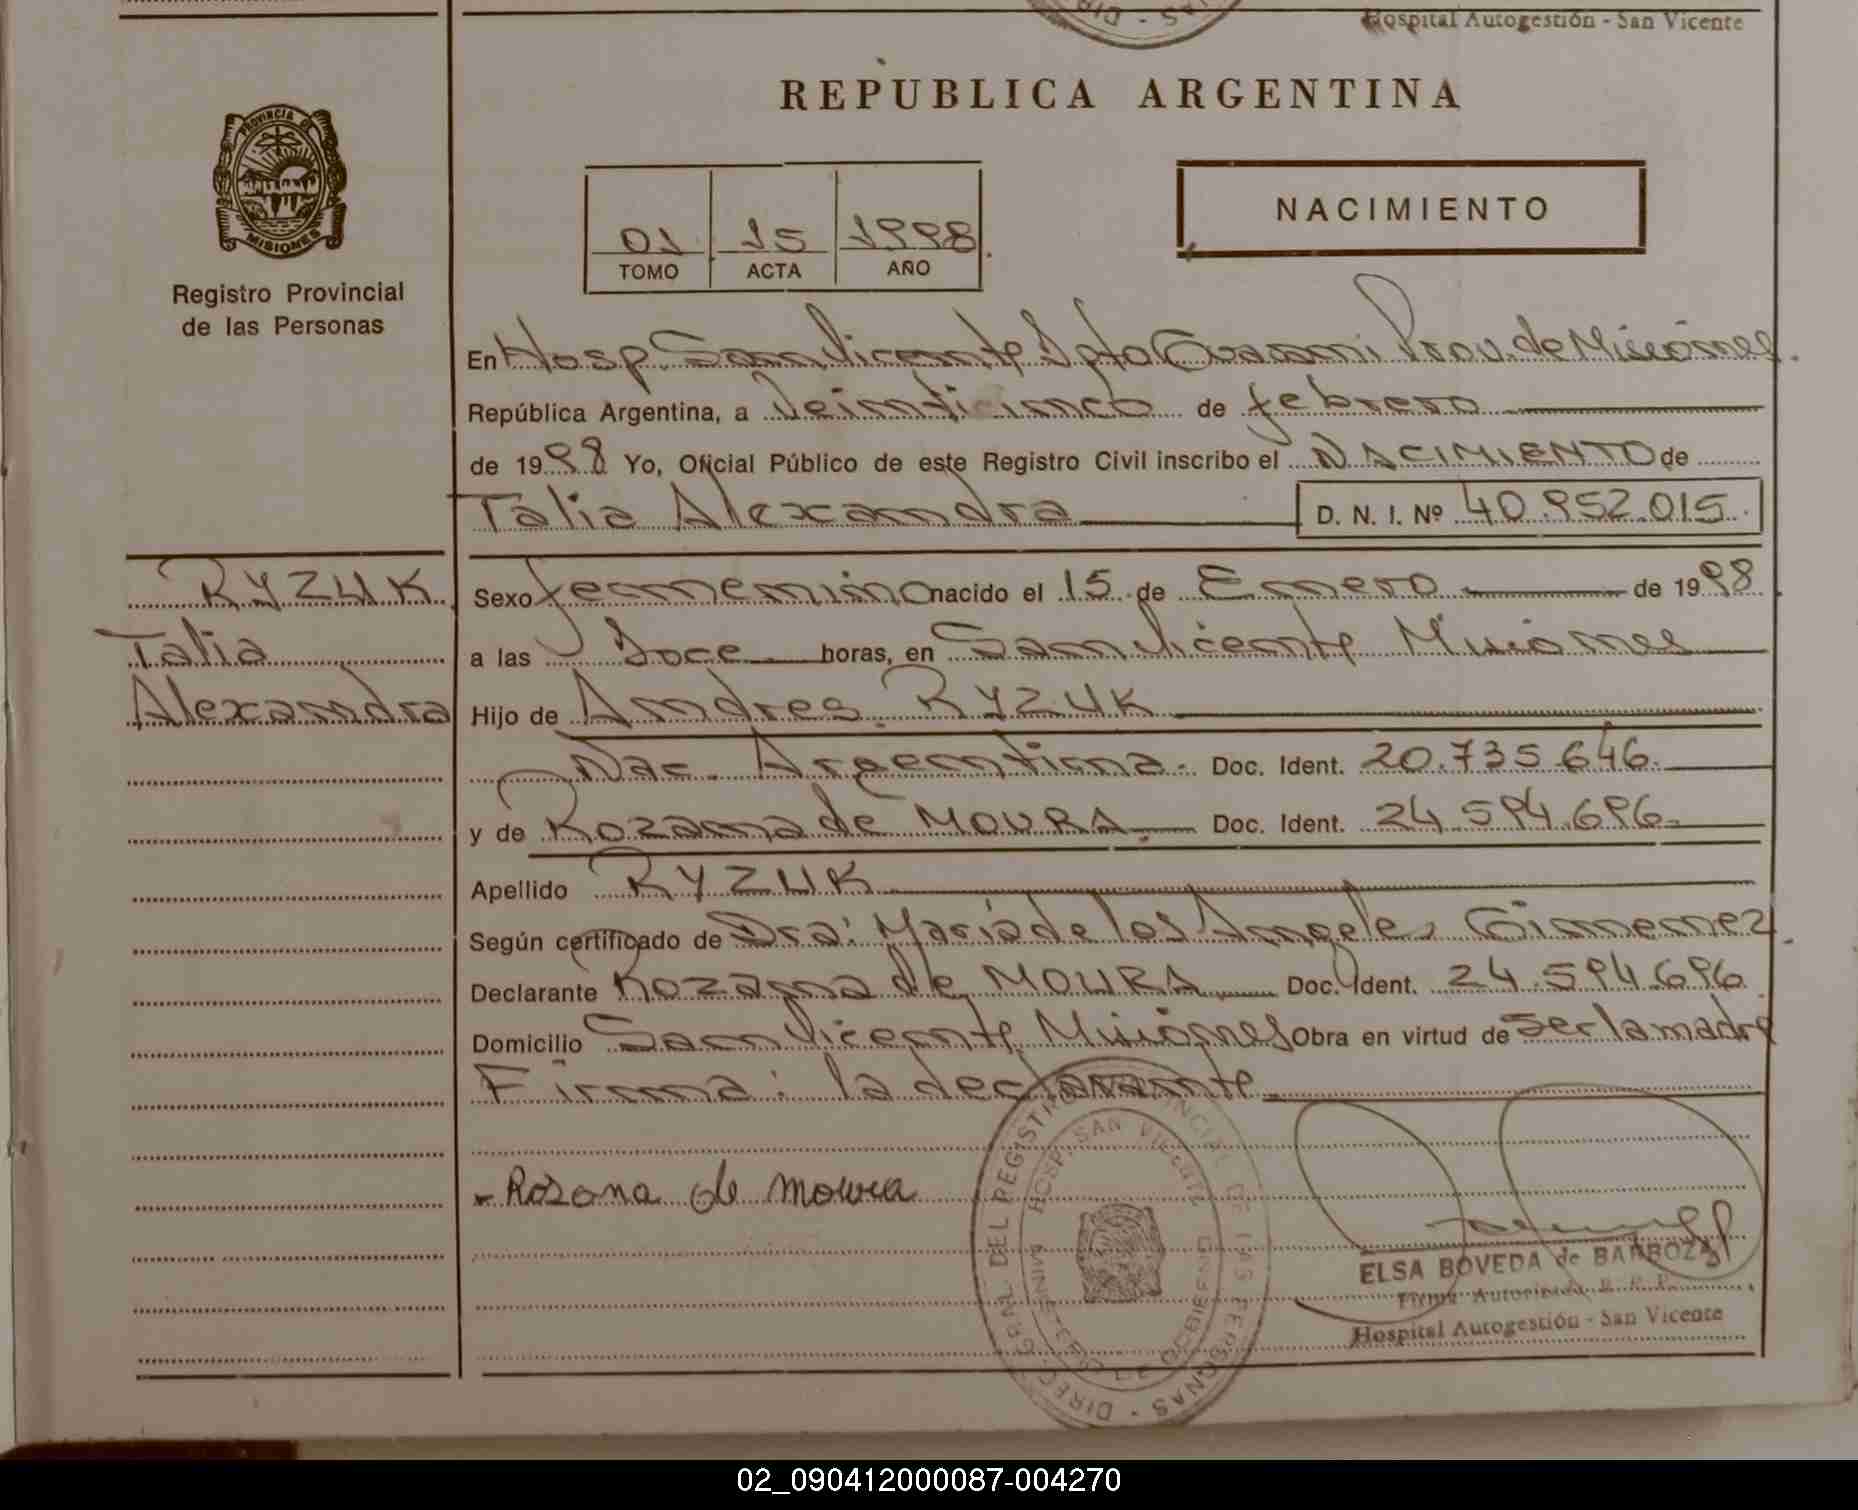 Hospital Autogestión - San Vicente
REPUBLICA ARGENTINA
PROVINCIA DE
MISIONES
Registro Provincial
de las Personas
01 15 1998
TOMO ACTA AÑO
NACIMIENTO
En Hosp. San Vicente Dpto Guarani Prov. de Misiones.
República Argentina, a Veinticinco de febrero
de 1998 Yo, Oficial Público de este Registro Civil inscribo el NACIMIENTO de
Talia Alexandra D. N. I. Nº 40.952.015.
RYZUK
Talia
Alexandra
Sexo femenino nacido el 15 de Enero de 1998
a las Doce horas, en San Vicente Misiones
Hijo de Andres RYZUK
Nac. Argentina. Doc. Ident. 20.735.646.
y de Rozana de MOURA. Doc. Ident. 24.594.696.
Apellido RYZUK
Según certificado de Dra: María de los Angeles Gimenez.
Declarante Rozana de MOURA Doc. Ident. 24.594.696
Domicilio San Vicente Misiones Obra en virtud de ser la madre
Firma: la declarante
- Rozana de moura
HOSP. SAN VICENTE
ELSA BOVEDA de BARBOZA
Firma Autorizada R. P. P.
Hospital Autogestión - San Vicente
02_090412000087-004270